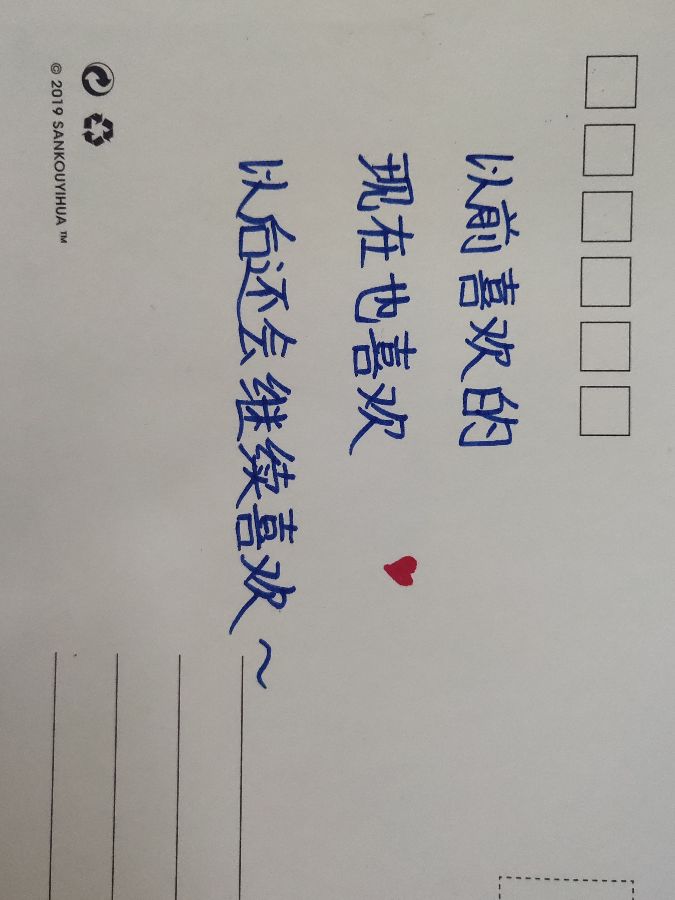 以前喜欢的
现在也喜欢
以后还会继续喜欢～
© 2019 SANKOUYIHUA ™